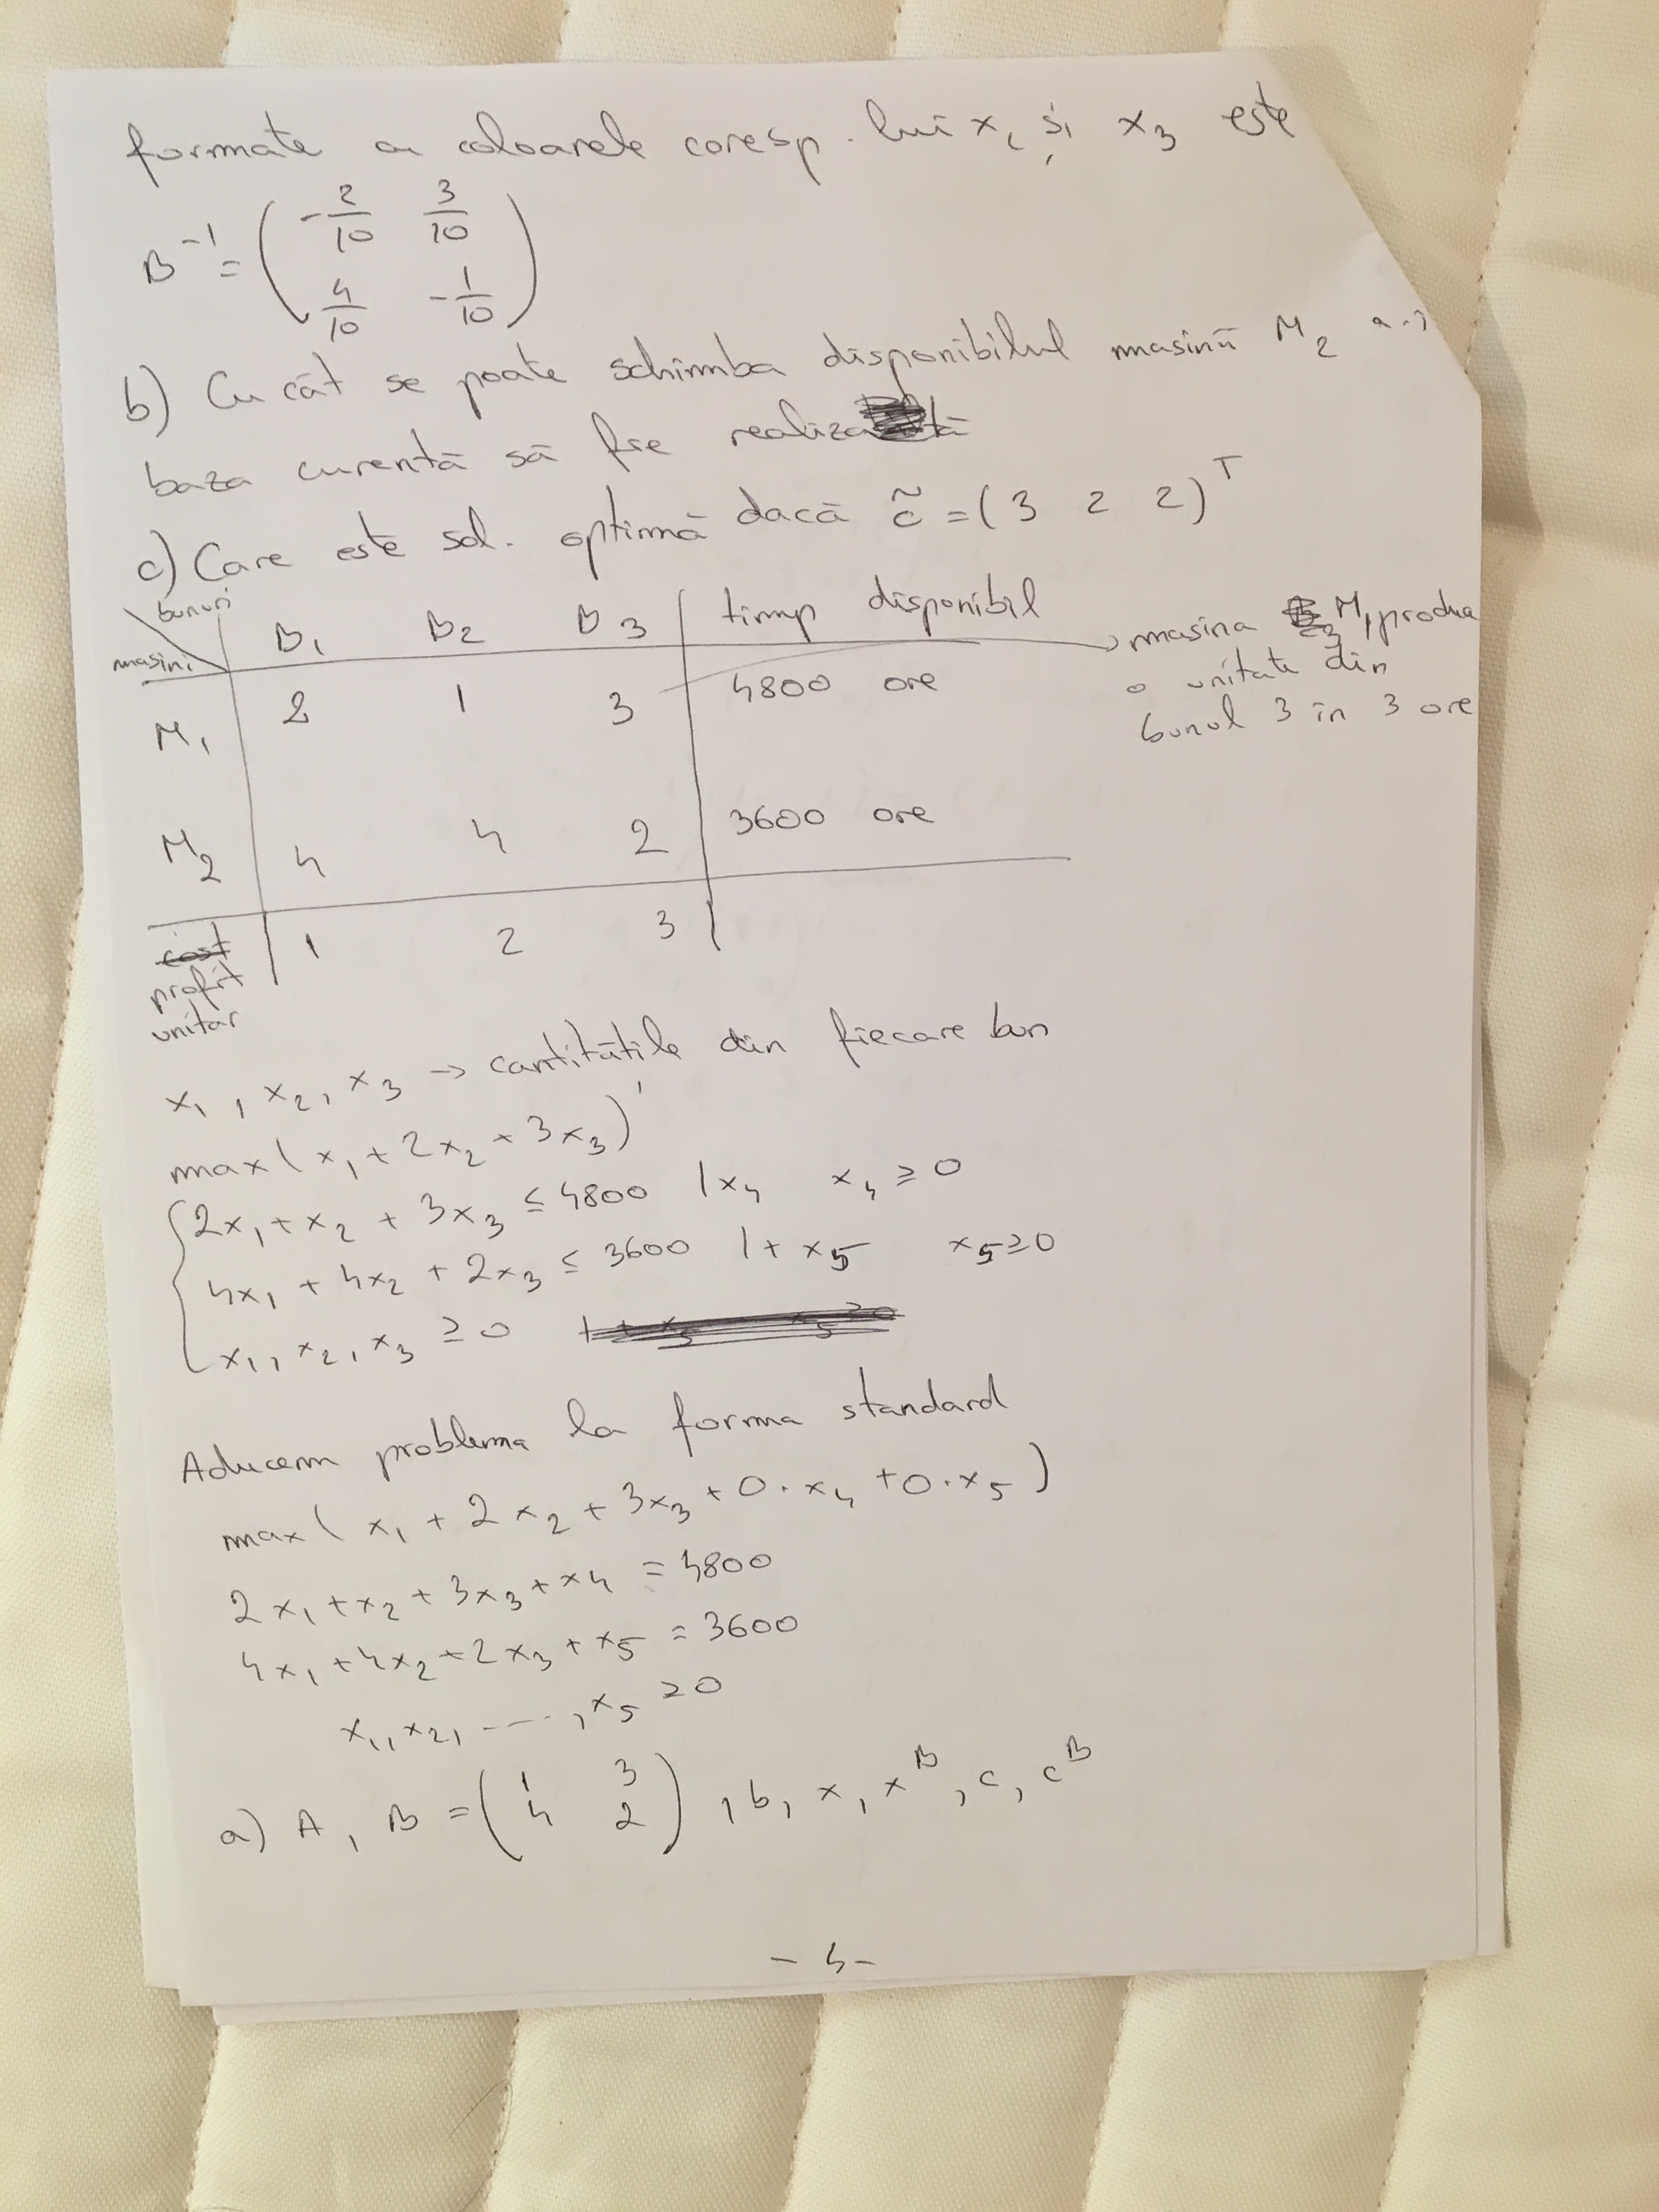 formate cu coloanele coresp. lui x₂ și x₃ este
B⁻¹ = ( -2/10 3/10
4/10 -1/10 )
b) Cu cât se poate schimba disponibilul masinii M₂ a.î
baza curentă să fie realizată
c) Care este sol. optimă dacă c̃ = (3 2 2)ᵀ
bunuri
masini B₁ B₂ B₃ timp disponibil
M₁ 2 1 3 4800 ore
→ masina M₁ produce
o unitate din
bunul 3 în 3 ore
M₂ 4 4 2 3600 ore
cost 1 2 3
profit
unitar
x₁, x₂, x₃ → cantitățile din fiecare bun
max(x₁ + 2x₂ + 3x₃)
2x₁ + x₂ + 3x₃ ≤ 4800 | x₄ x₄ ≥ 0
4x₁ + 4x₂ + 2x₃ ≤ 3600 | + x₅ x₅ ≥ 0
x₁, x₂, x₃ ≥ 0
Aducem problema la forma standard
max( x₁ + 2x₂ + 3x₃ + 0·x₄ + 0·x₅ )
2x₁ + x₂ + 3x₃ + x₄ = 4800
4x₁ + 4x₂ + 2x₃ + x₅ = 3600
x₁, x₂, ----, x₅ ≥ 0
a) A, B = ( 1 3
4 2 ) , b, x, xᴮ, c, cᴮ
- 4 -